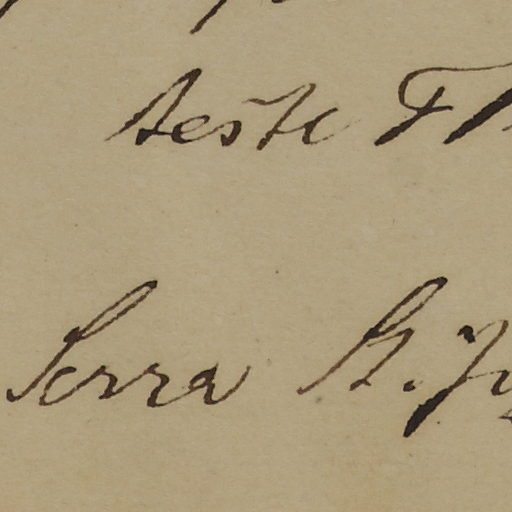 teste F
Serra St.